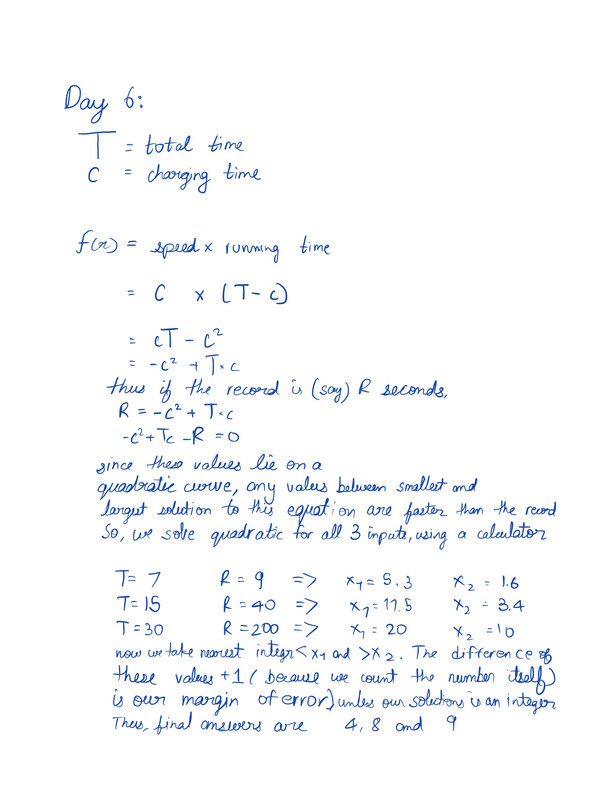 Day 6:
T = total time
c = charging time
f(x) = speed x running time
= C x (T - c)
= cT - c²
= -c² + T·c
thus if the record is (say) R seconds,
R = -c² + T·c
-c² + Tc - R = 0
since these values lie on a
quadratic curve, any values between smallest and
largest solution to this equation are faster than the record
So, we solve quadratic for all 3 inputs, using a calculator
T = 7 R = 9 => x₁ = 5.3 x₂ = 1.6
T = 15 R = 40 => x₁ = 11.5 x₂ = 3.4
T = 30 R = 200 => x₁ = 20 x₂ = 10
now we take nearest integr < x₁ and > x₂. The difference of
these values +1 (because we count the number itself)
is our margin of error) unless our solutions is an integer
Thus, final answers are 4, 8 and 9